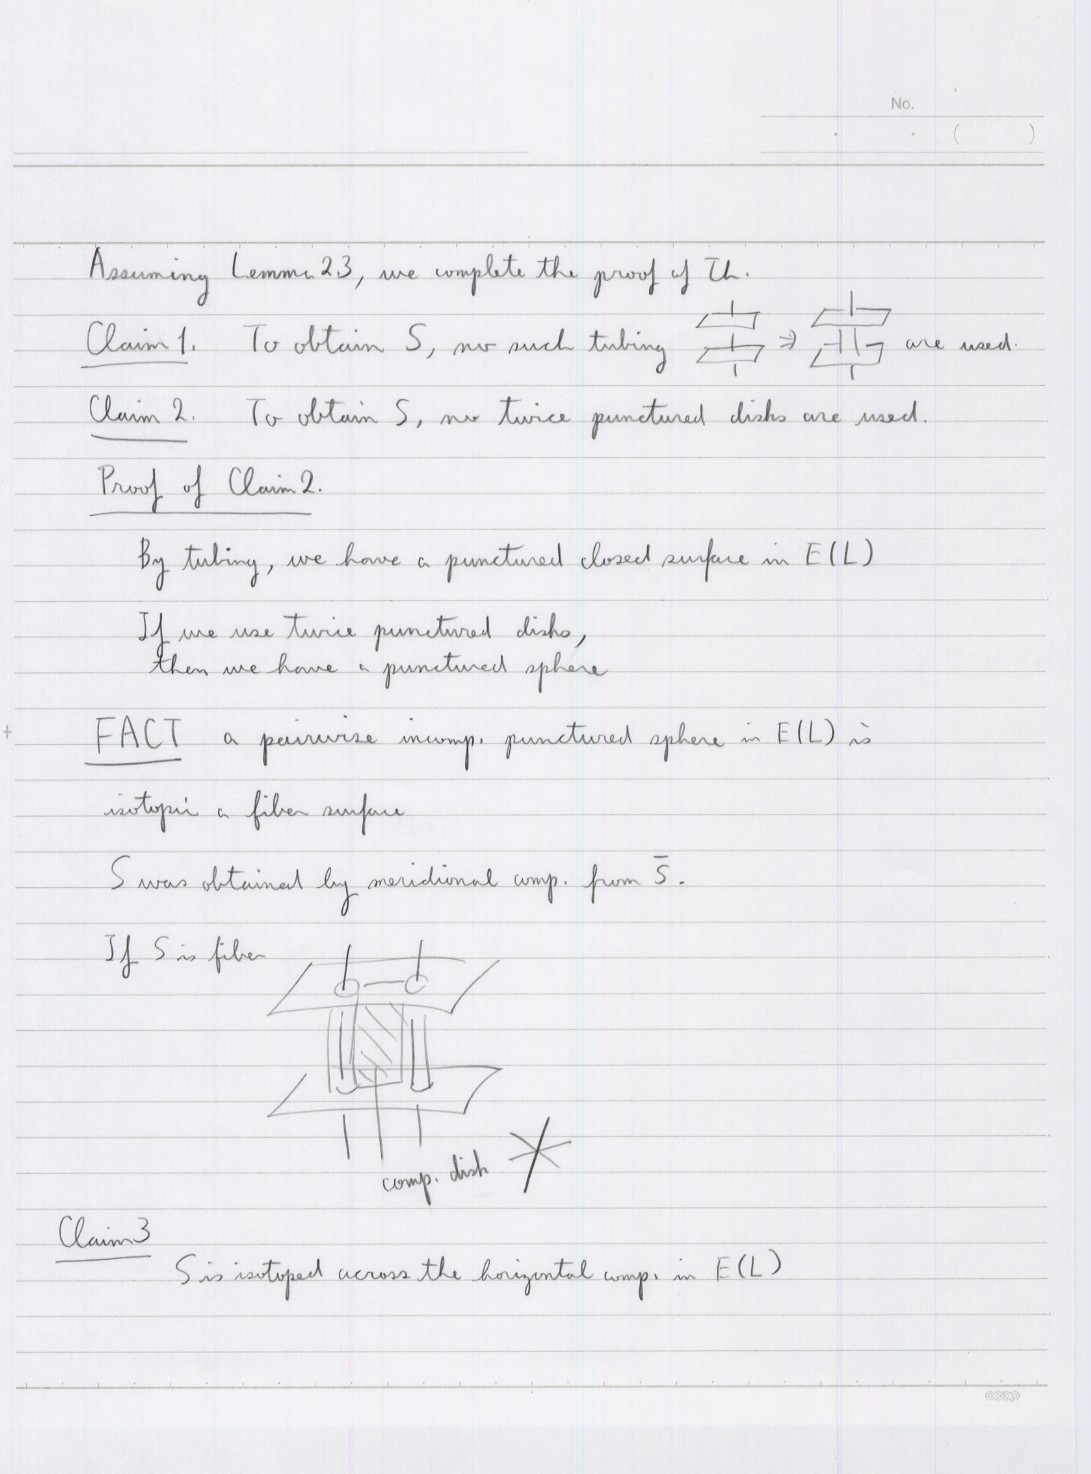 No.
. . ( )
Assuming Lemma 2.3, we complete the proof of Th.
Claim 1. To obtain S, no such tubing ⇒ are used.
Claim 2. To obtain S, no twice punctured disks are used.
Proof of Claim 2.
By tubing, we have a punctured closed surface in E(L)
If we use twice punctured disks,
then we have a punctured sphere
FACT a pairwise incomp. punctured sphere in E(L) is
isotopic a fiber surface
S was obtained by meridional comp. from S̄.
If S is fiber
comp. disk
Claim 3
S is isotoped across the horizontal comp. in E(L)